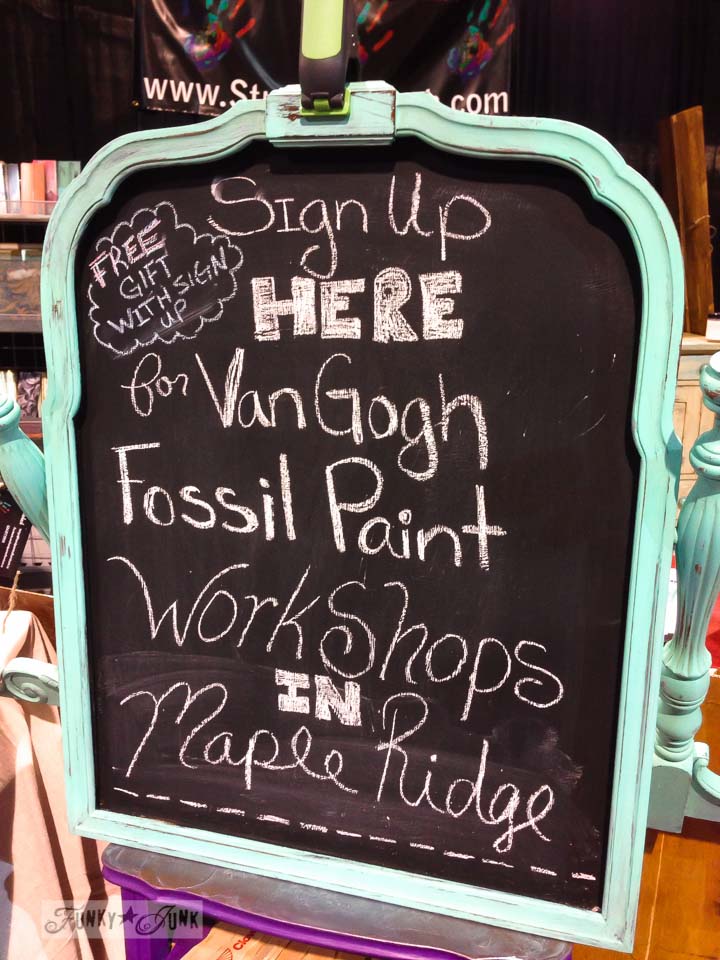 www.St
.com
Sign Up
FREE
GIFT
WITH SIGN
UP
HERE
for Van Gogh
Fossil Paint
WorkShops
IN
Maple Ridge
FUNKY★JUNK